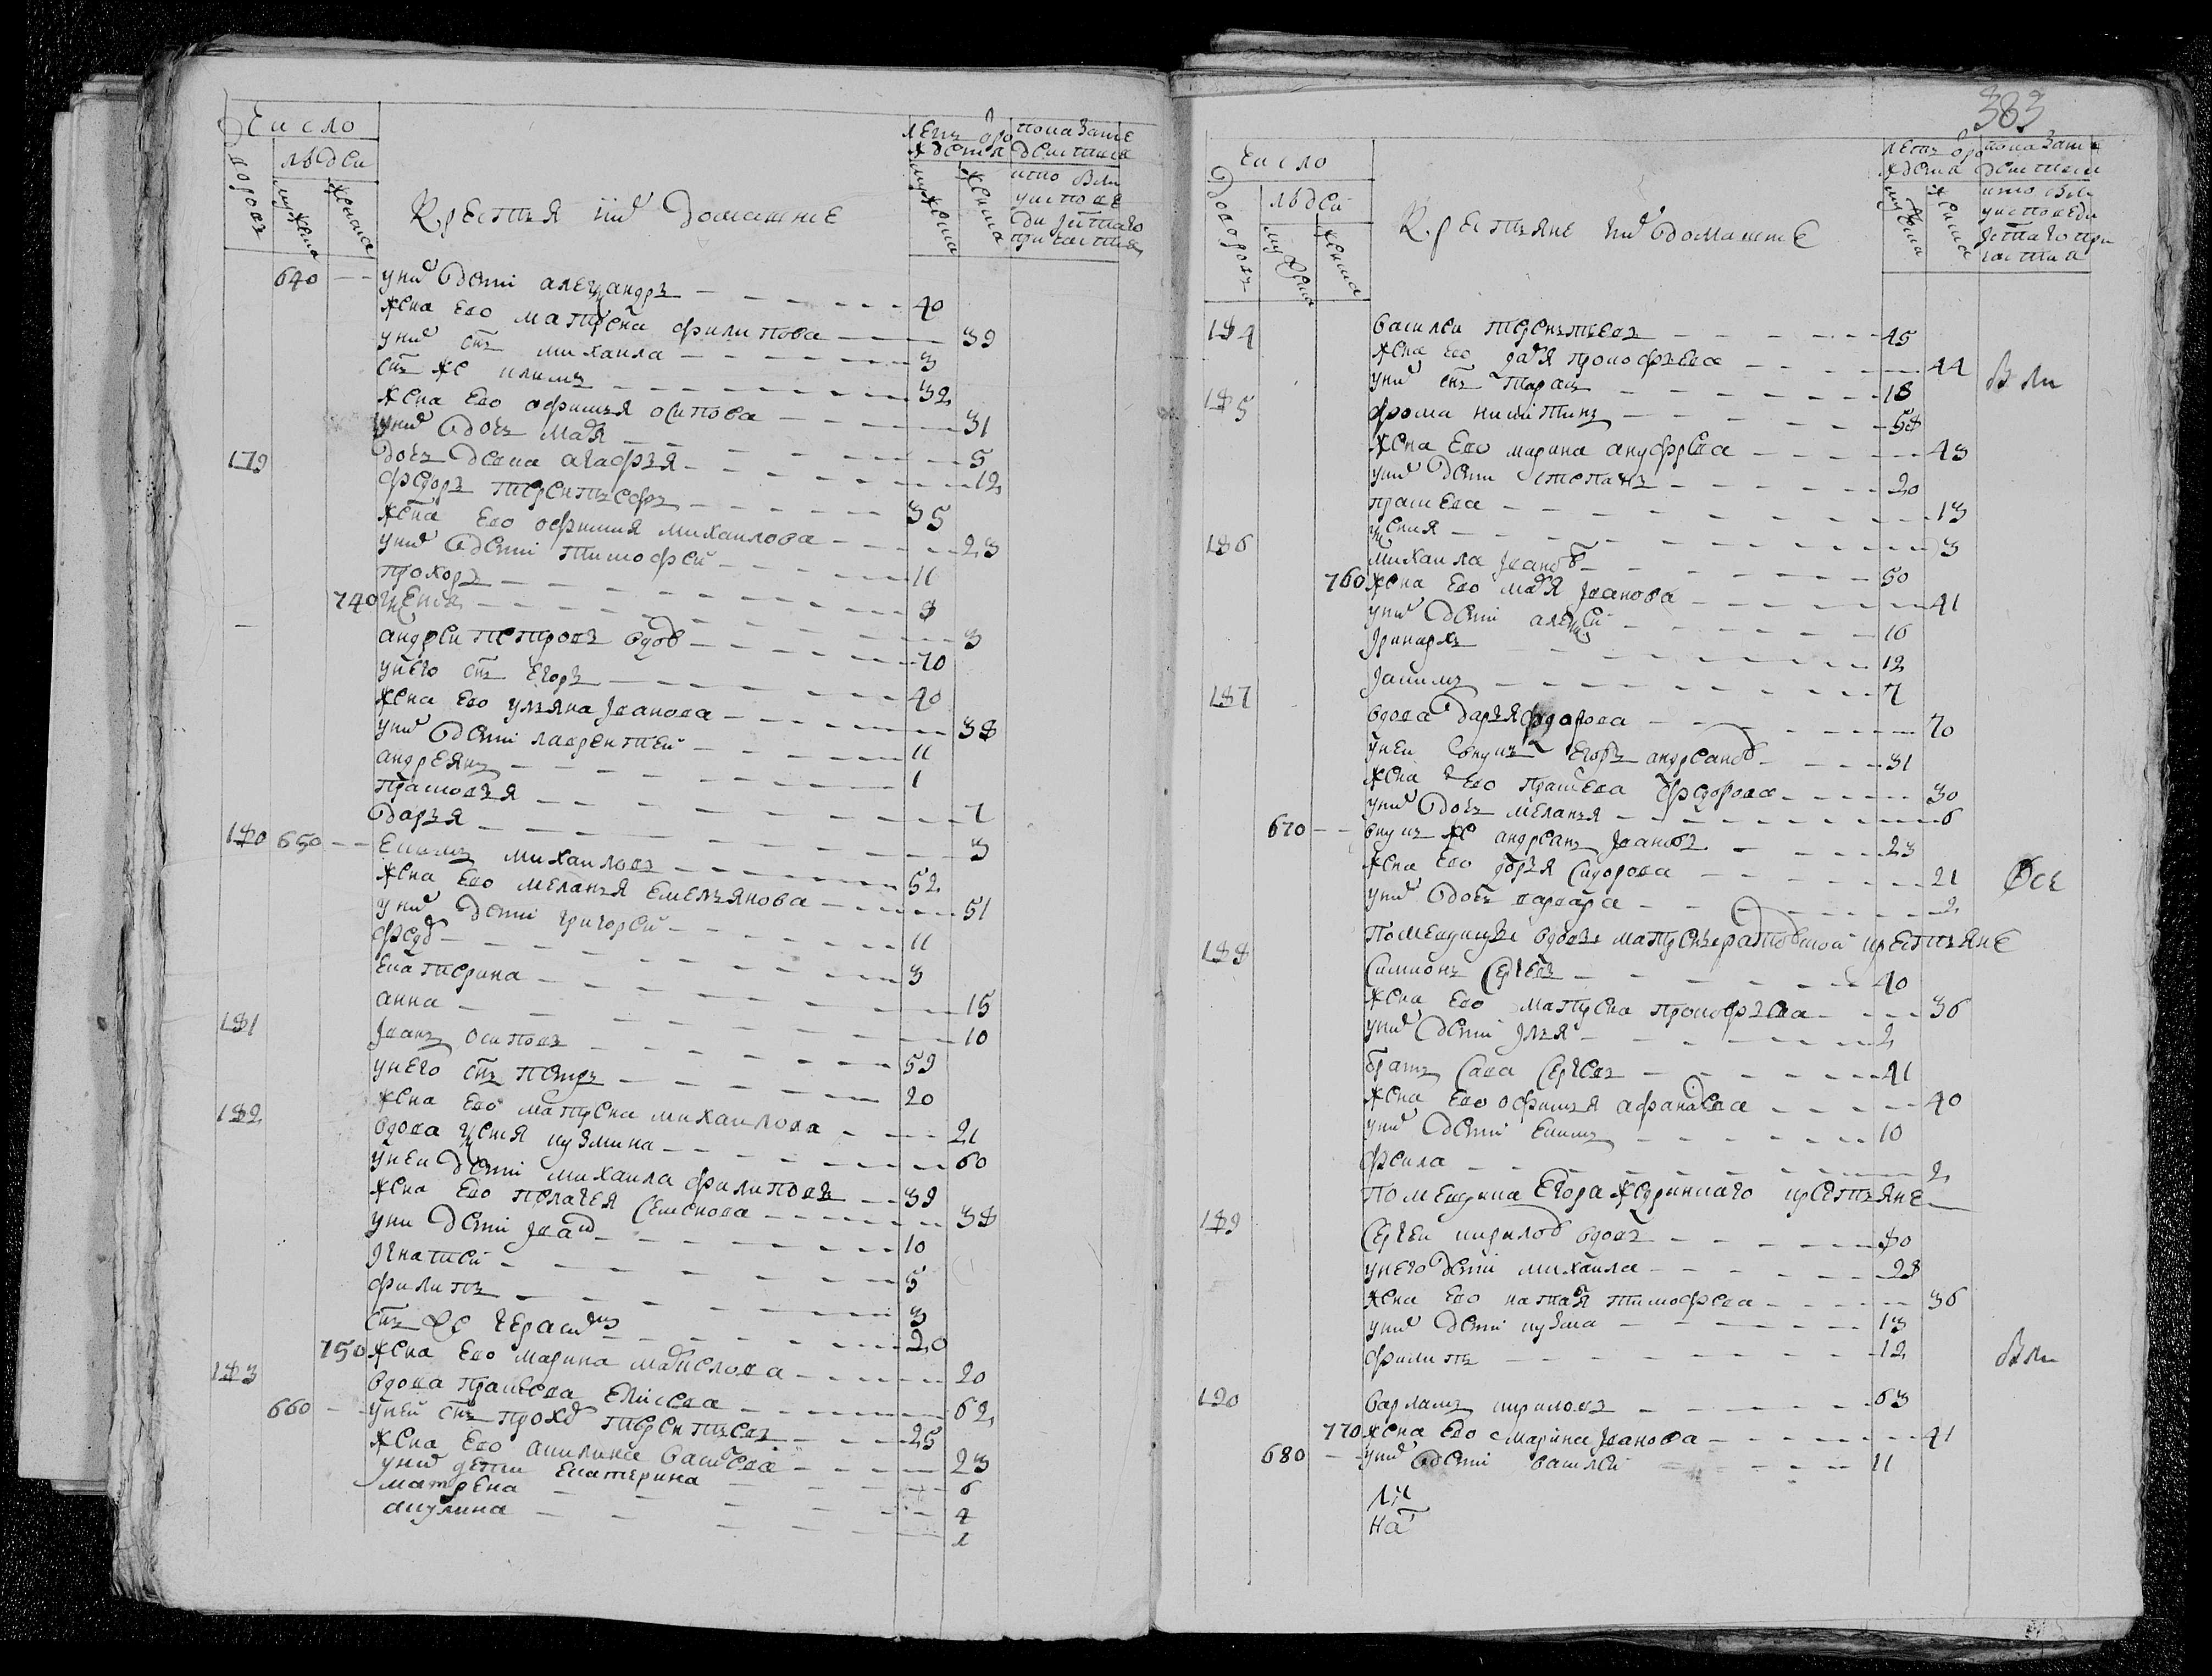 Число
дворовъ
людей
мужеска
женска
Крестья ких домашние
летъ оро
ждения
мужеска
женска
показание
действия
кто были
у испове
ди и святаго
причастия
640 у них дети александръ 40
жена ево матрена филипова 39
у них снъ михаила 3
снъ же климъ 32
жена ево афимья осипова 31
у них дочь мавря 5
дочь девка агафья 12
179 федоръ терентьефъ 35
жена ево офимия михаилова 23
у них дети тимофей 11
прохоръ 8
740 ксения 3
андреи петровъ вдов 70
у него снъ егоръ 40
жена ево ульяна Иванова 38
у них дети лаврентией 11
андреянъ 1
прасковья 7
дарья 3
180 650 екимъ михаиловъ 52
жена ево меланья емельянова 51
у них дети григорей 11
федо 3
екатерина 15
анна 10
181 Иванъ осиповъ 59
у него снъ петръ 20
жена ево матрена михаилова 21
182 вдова ксения кузмина 60
у неи дети михаила филиповъ 39
жена ево пелагея семенова 38
у них дети Иван 10
Игнатией 5
филипъ 3
снъ же герасим 20
750 жена ево марина мануслова 20
183 вдова прасковя елисева 62
660 у ней снъ прохо терентьевъ 25
жена ево акилина васисева 23
у них дети екатерина 6
матрена 4
акулина 1
383
Число
дворовъ
людей
мужеска
женска
Крестьяне ких домашние
летъ оро
ждения
мужеска
женска
показание
действии
кто были
у исповеди
и святаго при
частия
184 василеи терентьевъ 45
жена ево дарья прокофьева 44
были
у них снъ тарасъ 18
185 фома никитинъ 58
жена ево марина ануфрева 43
у них дети степанъ 20
праскева 13
ксения 3
186 михаила Иванов 50
760 жена ево мавря Иванова 41
у них дети алексей 16
Иринархъ 12
Иакимъ 7
187 вдова дарья федорова 70
у неи внукъ егоръ андреянов 31
жена ево праскева федорова 30
у них дочь меланья 6
670 внукъ же андреанъ Ивановъ 23
жена ево дарья сидорова 21
все
у них дочь варвара 2
Помещицы вдовы матрены крестьяне
188 симионъ сергеевъ 40
жена ево матрена прокофьева 36
у них дети Илья 2
братъ сава сергеевъ 41
жена ево офимья афанасева 40
у них дети екимъ 10
фекла 2
помещика егора крестьяне
189 сергеи кирилов вдовъ 80
у него дети михаила 28
жена ево наталя тимофева 36
у них дети кузма 13
филипъ 12
были
190 варламъ кириловъ 63
770 жена ево марина Иванова 41
680 у них дети василей 11